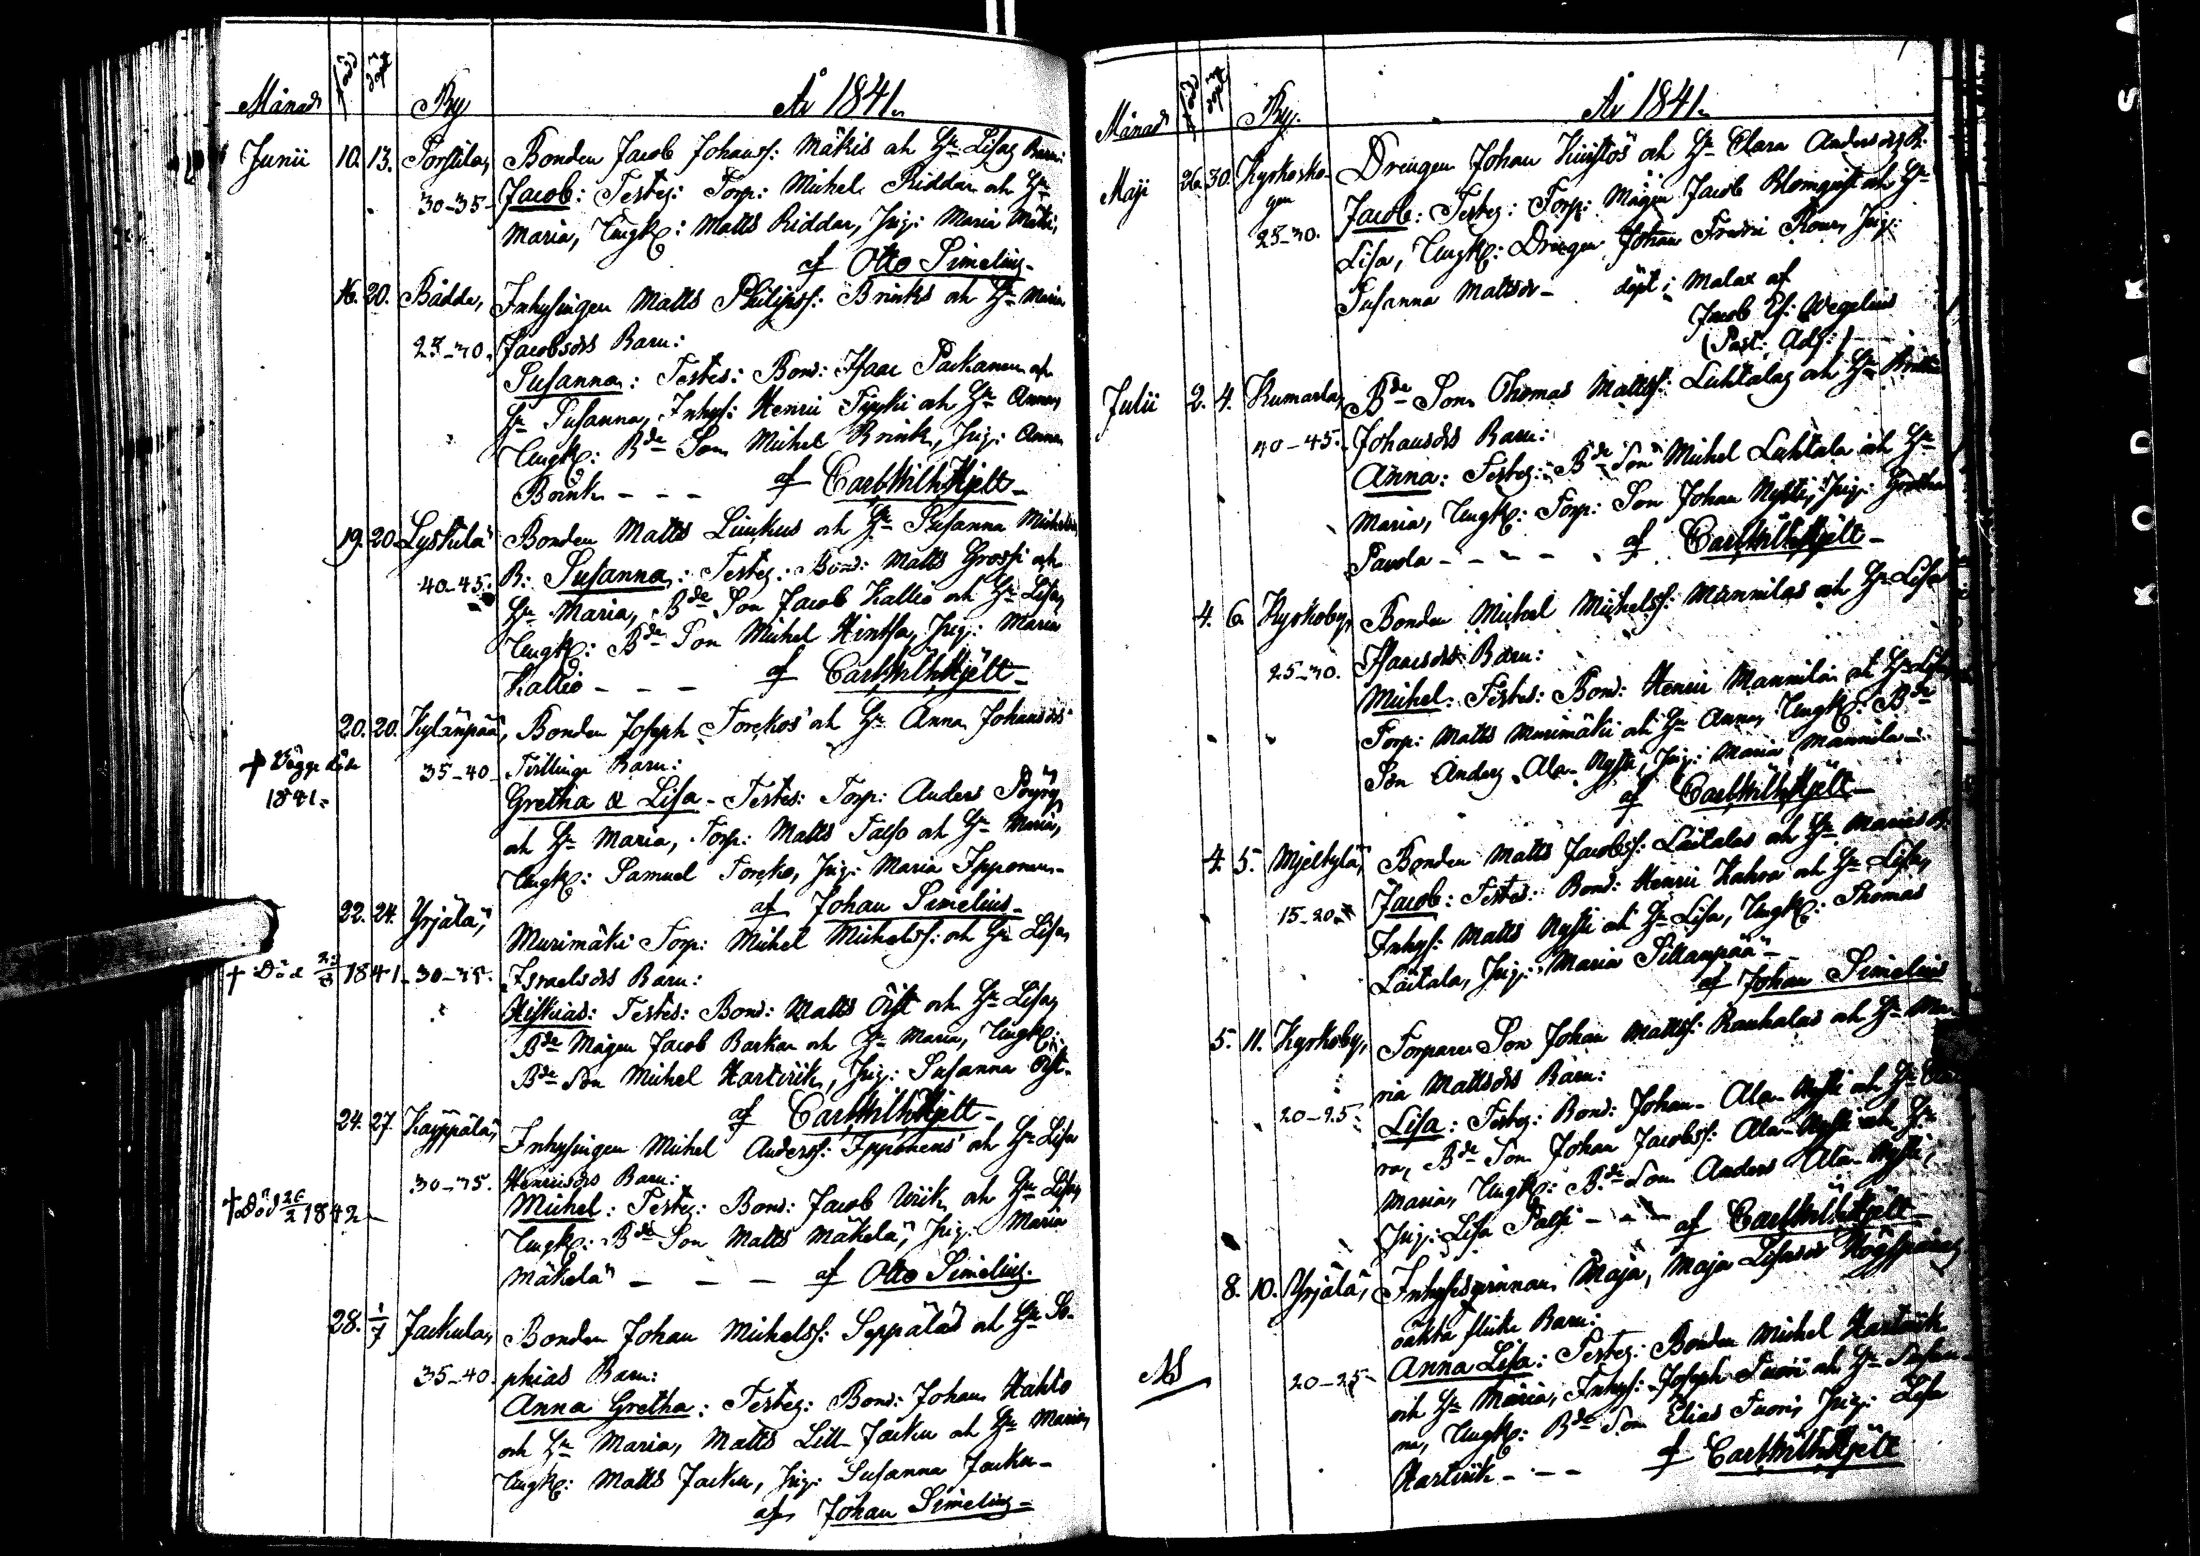 Månad född döpt By År 1841.
Junii 10. 13. Torstila, Bonden Jacob Johanss: Mäkis och H:u Lisas Barn:
30-35- Jacob: Testes: Torp: Michel Riddar och H:u
Maria, Ungk: Matts Riddar, Pig: Maria Mäki,
af Otto Simelius-
16. 20. Rådda, Inhysingen Matts Philipss: Brinks och H:u Maria
25-30. Jacobsdrs Barn:
Susanna: Testes: Bond: Isaac Parkanen och
H:u Susanna, Inhys: Henric Tyyki och H:u Anna,
Ungk: B:de Son Michel Brink, Pig: Anna
Brink - - - af Carl Wilh Hjelt-
19. 20. Lyskilä Bonden Matts Liukus och H:u Susanna Michelsdrs
40-45. B: Susanna: Testes: Bond: Matts Grossi och
H:u Maria, B:de Son Jacob Kallio och H:u Lisa,
Ungk: B:de Son Michel Hintsa, Pig: Maria
Kallio - - - af Carl Wilh Hjelt-
20. 20. Kylänpää, Bonden Joseph Torckos och H:u Anna Johansdrs
† Bägge döde 35-40- Tvillinge Barn:
1841- Gretha & Lisa - Testes: Torp: Anders Pöyry
och H:u Maria, Torp: Matts Talso och H:u Maria,
Ungk: Samuel Torcko, Pig: Maria Ipponen-
af Johan Simelius-
22. 24. Yrjälä, Murimäki Torp: Michel Michelss: och H:u Lisa
† Död 1841- 30-35. Israelsdrs Barn:
Hiskias: Testes: Bond: Matts Öist och H:u Lisa,
B:de Mågen Jacob Barkar och H:u Maria, Ungk:
B:de Son Michel Hartvik, Pig: Susanna Öist-
af Carl Wilh Hjelt-
24. 27. Käppälä, Inhysingen Michel Anderss: Ipponens och H:u Lisa
30-35. Henricsdrs Barn:
† Död 26/2 1842- Michel: Testes: Bond: Jacob Urik och H:u Lisa,
Ungk: B:de Son Matts Mäkelä, Pig: Maria
Mäkelä - - - af Otto Simelius.
28. 1/7 Jackula, Bonden Johan Michelss: Seppäläs och H:u So-
35-40. phias Barn:
Anna Gretha: Testes: Bond: Johan Hahto
och H:u Maria, Matts Lill Jacku och H:u Maria,
Ungk: Matts Jacku, Pig: Susanna Jacku-
af Johan Simelius-
Månad född döpt By. År 1841.
Maji 26. 30. Kyrkosko- Drengen Johan och H:u Clara Andersdrs B:
gen Jacob: Testes: Torp: Mågen Jacob Blomqvist och H:u
25-30. Lisa, Ungk: Drengen Johan Fredric Roun, Pig:
Susanna Mattsdr- döpt i Malax af
Jacob Ef: Wegelius
(Past: Adj:)
Julii 2. 4. Kumarla, B:de Son Thomas Mattss: Luhtalas och H:u Britta
40-45. Johansdrs Barn:
Anna: Testes: B:de Son Michel Luhtala och H:u
Maria, Ungk: Torp: Son Johan Nysti, Pig: Gretha
Pavola - - - - af Carl Wilh Hjelt-
4. 6. Kyrkoby, Bonden Michel Michelss: Mannilas och H:u Lisa
25-30. Isaacsdrs Barn:
Michel: Testes: Bond: Henric Mannila och H:u Lisa,
Torp: Matts Murimäki och H:u Anna, Ungk: B:de
Son Anders Ala-Nysti, Pig: Maria Mannila-
af Carl Wilh Hjelt-
4. 5. Mjelkylä, Bonden Matts Jacobss: Laitalas och H:u Marias B.
15-20. Jacob: Testes: Bond: Henric Kahra och H:u Lisa,
Inhys: Matts Nysti och H:u Lisa, Ungk: Thomas
Laitala, Pig: Maria Sillanpää-
af Johan Simelius
5. 11. Kyrkoby, Torpare Son Johan Mattss: Rauhalas och H:u Ma-
ria Mattsdrs Barn:
20-25. Lisa: Testes: Bond: Johan Ala-Nysti och H:u
ra, B:de Son Johan Jacobss: Ala-Nysti och H:u
Maria, Ungk: B:de Son Anders Ala-Nysti,
Pig: Lisa Palsi - - - af Carl Wilh Hjelt-
8. 10. Yrjälä, Inhysesqvinnan Maja, Maja Lisasdr
oäkta flicke Barn:
NB 20-25- Anna Lisa: Testes: Bonden Michel Hartvik
och H:u Maria, Inhys: Joseph Tuori och H:u Susan-
na, Ungk: B:de Son Elias Tuori, Pig: Lisa
Hartvik - - - af Carl Wilh Hjelt
KODAK SA